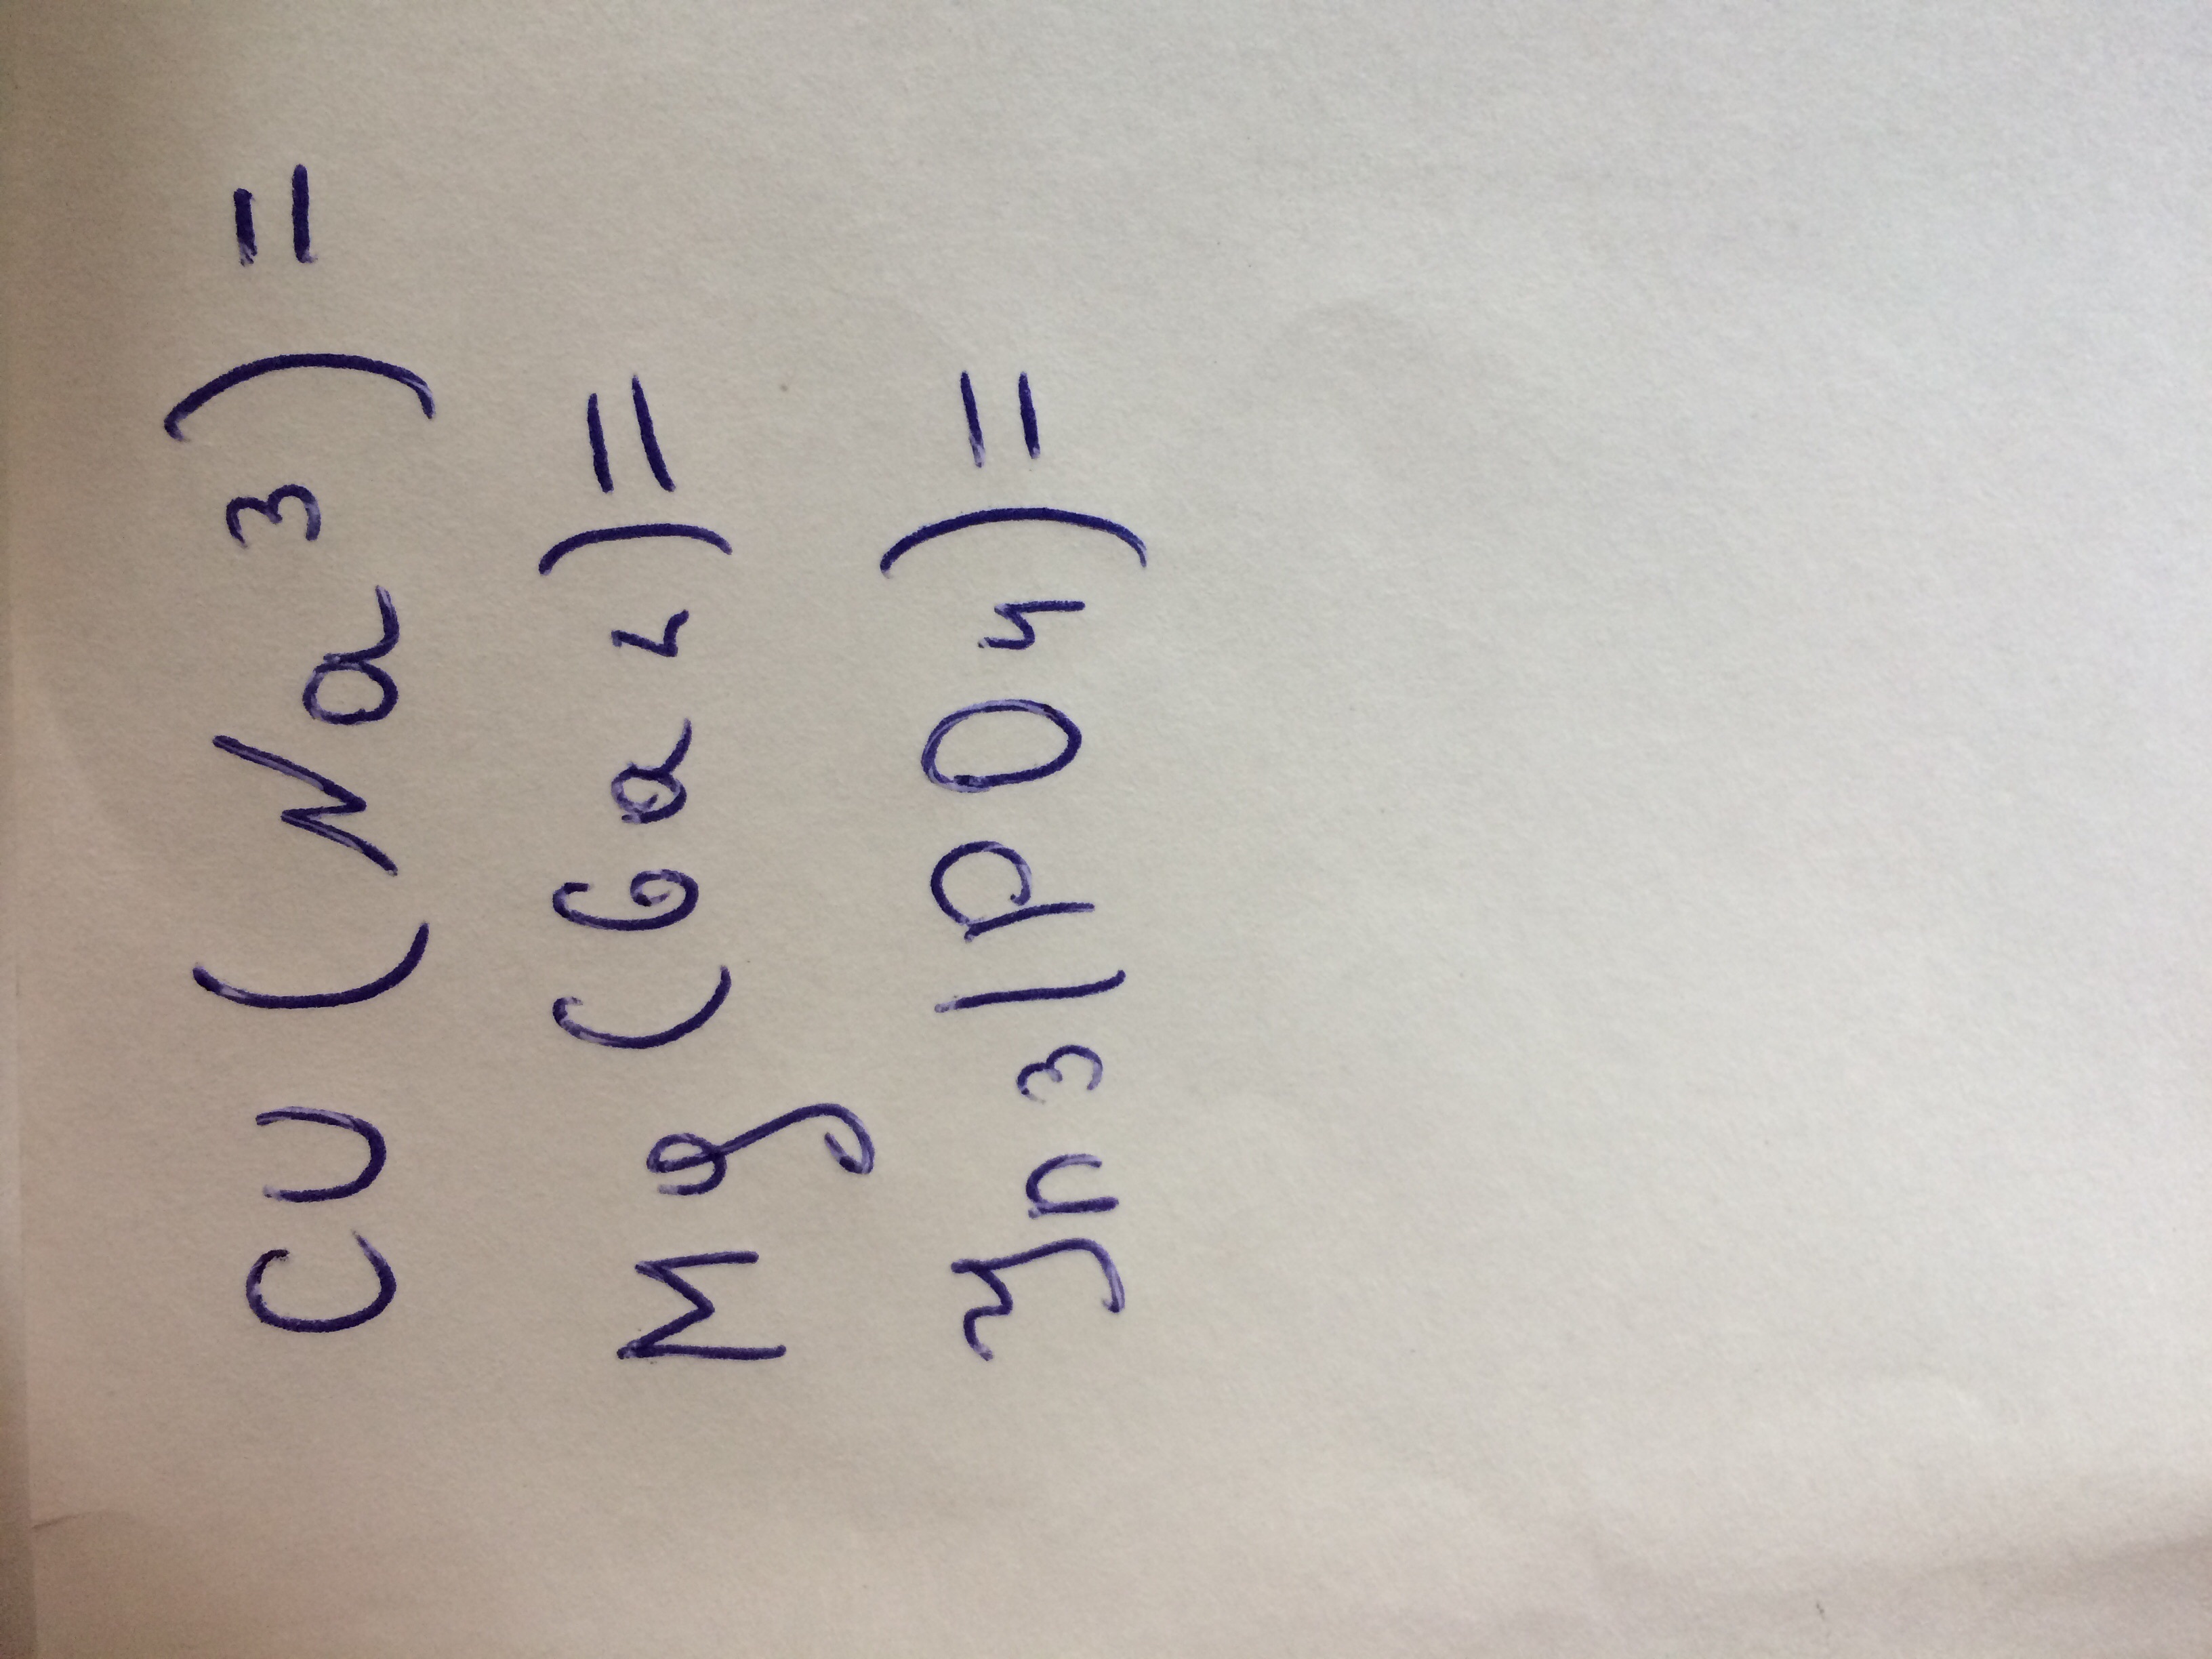 CU (Na 3) =
Mg (Ga 2) =
Zn 3 (PO4) =